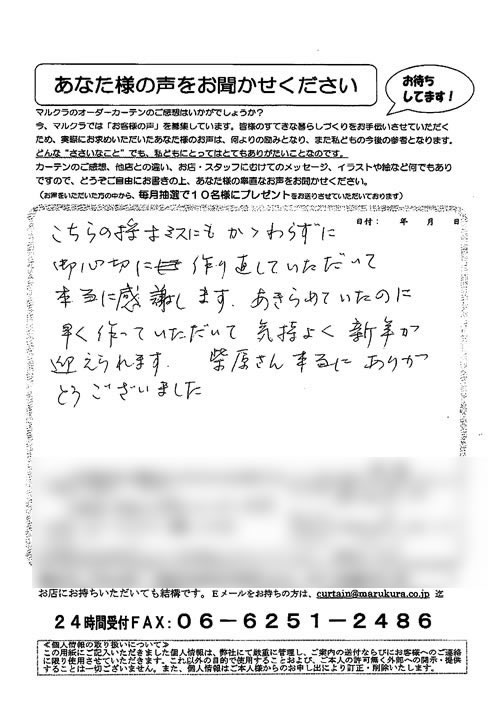 あなた様の声をお聞かせください
お待ち
してます！
マルクラのオーダーカーテンのご感想はいかがでしょうか？
今、マルクラでは「お客様の声」を募集しています。皆様のすてきな暮らしづくりをお手伝いさせていただく
ため、実際にお求めいただいたあなた様のお声は、何よりの励みとなり、また私どもの今後の参考となります。
どんな“ささいなこと”でも、私どもにとってはとてもありがたいことなのです。
カーテンのご感想、他店との違い、お店・スタッフにむけてのメッセージ、イラストや絵など何でもあり
ですので、どうぞご自由にお書きの上、あなた様の率直なお声をお聞かせください。
（お声をいただいた方の中から、毎月抽選で１０名様にプレゼントをお送りさせていただいております）
日付： 年 月 日
こちらの採寸ミスにもかゝわらずに
御心切に 作り直していただいて
本当に感謝します。あきらめていたのに
早く作っていただいて 気持よく 新年が
迎えられます。 柴原さん 本当に ありが
とうございました
お店にお持ちいただいても結構です。Ｅメールをお持ちの方は、curtain@marukura.co.jp 迄
２４時間受付FAX：０６－６２５１－２４８６
≪個人情報の取り扱いについて≫
この用紙にご記入いただきました個人情報は、弊社にて厳重に管理し、ご案内の送付ならびにお客様へのご連絡
に限り使用させていただきます。これ以外の目的で使用することおよび、ご本人の許可無く外部への開示・提供
することは一切ございません。また、個人情報はご本人様からのお申し出により訂正・削除いたします。